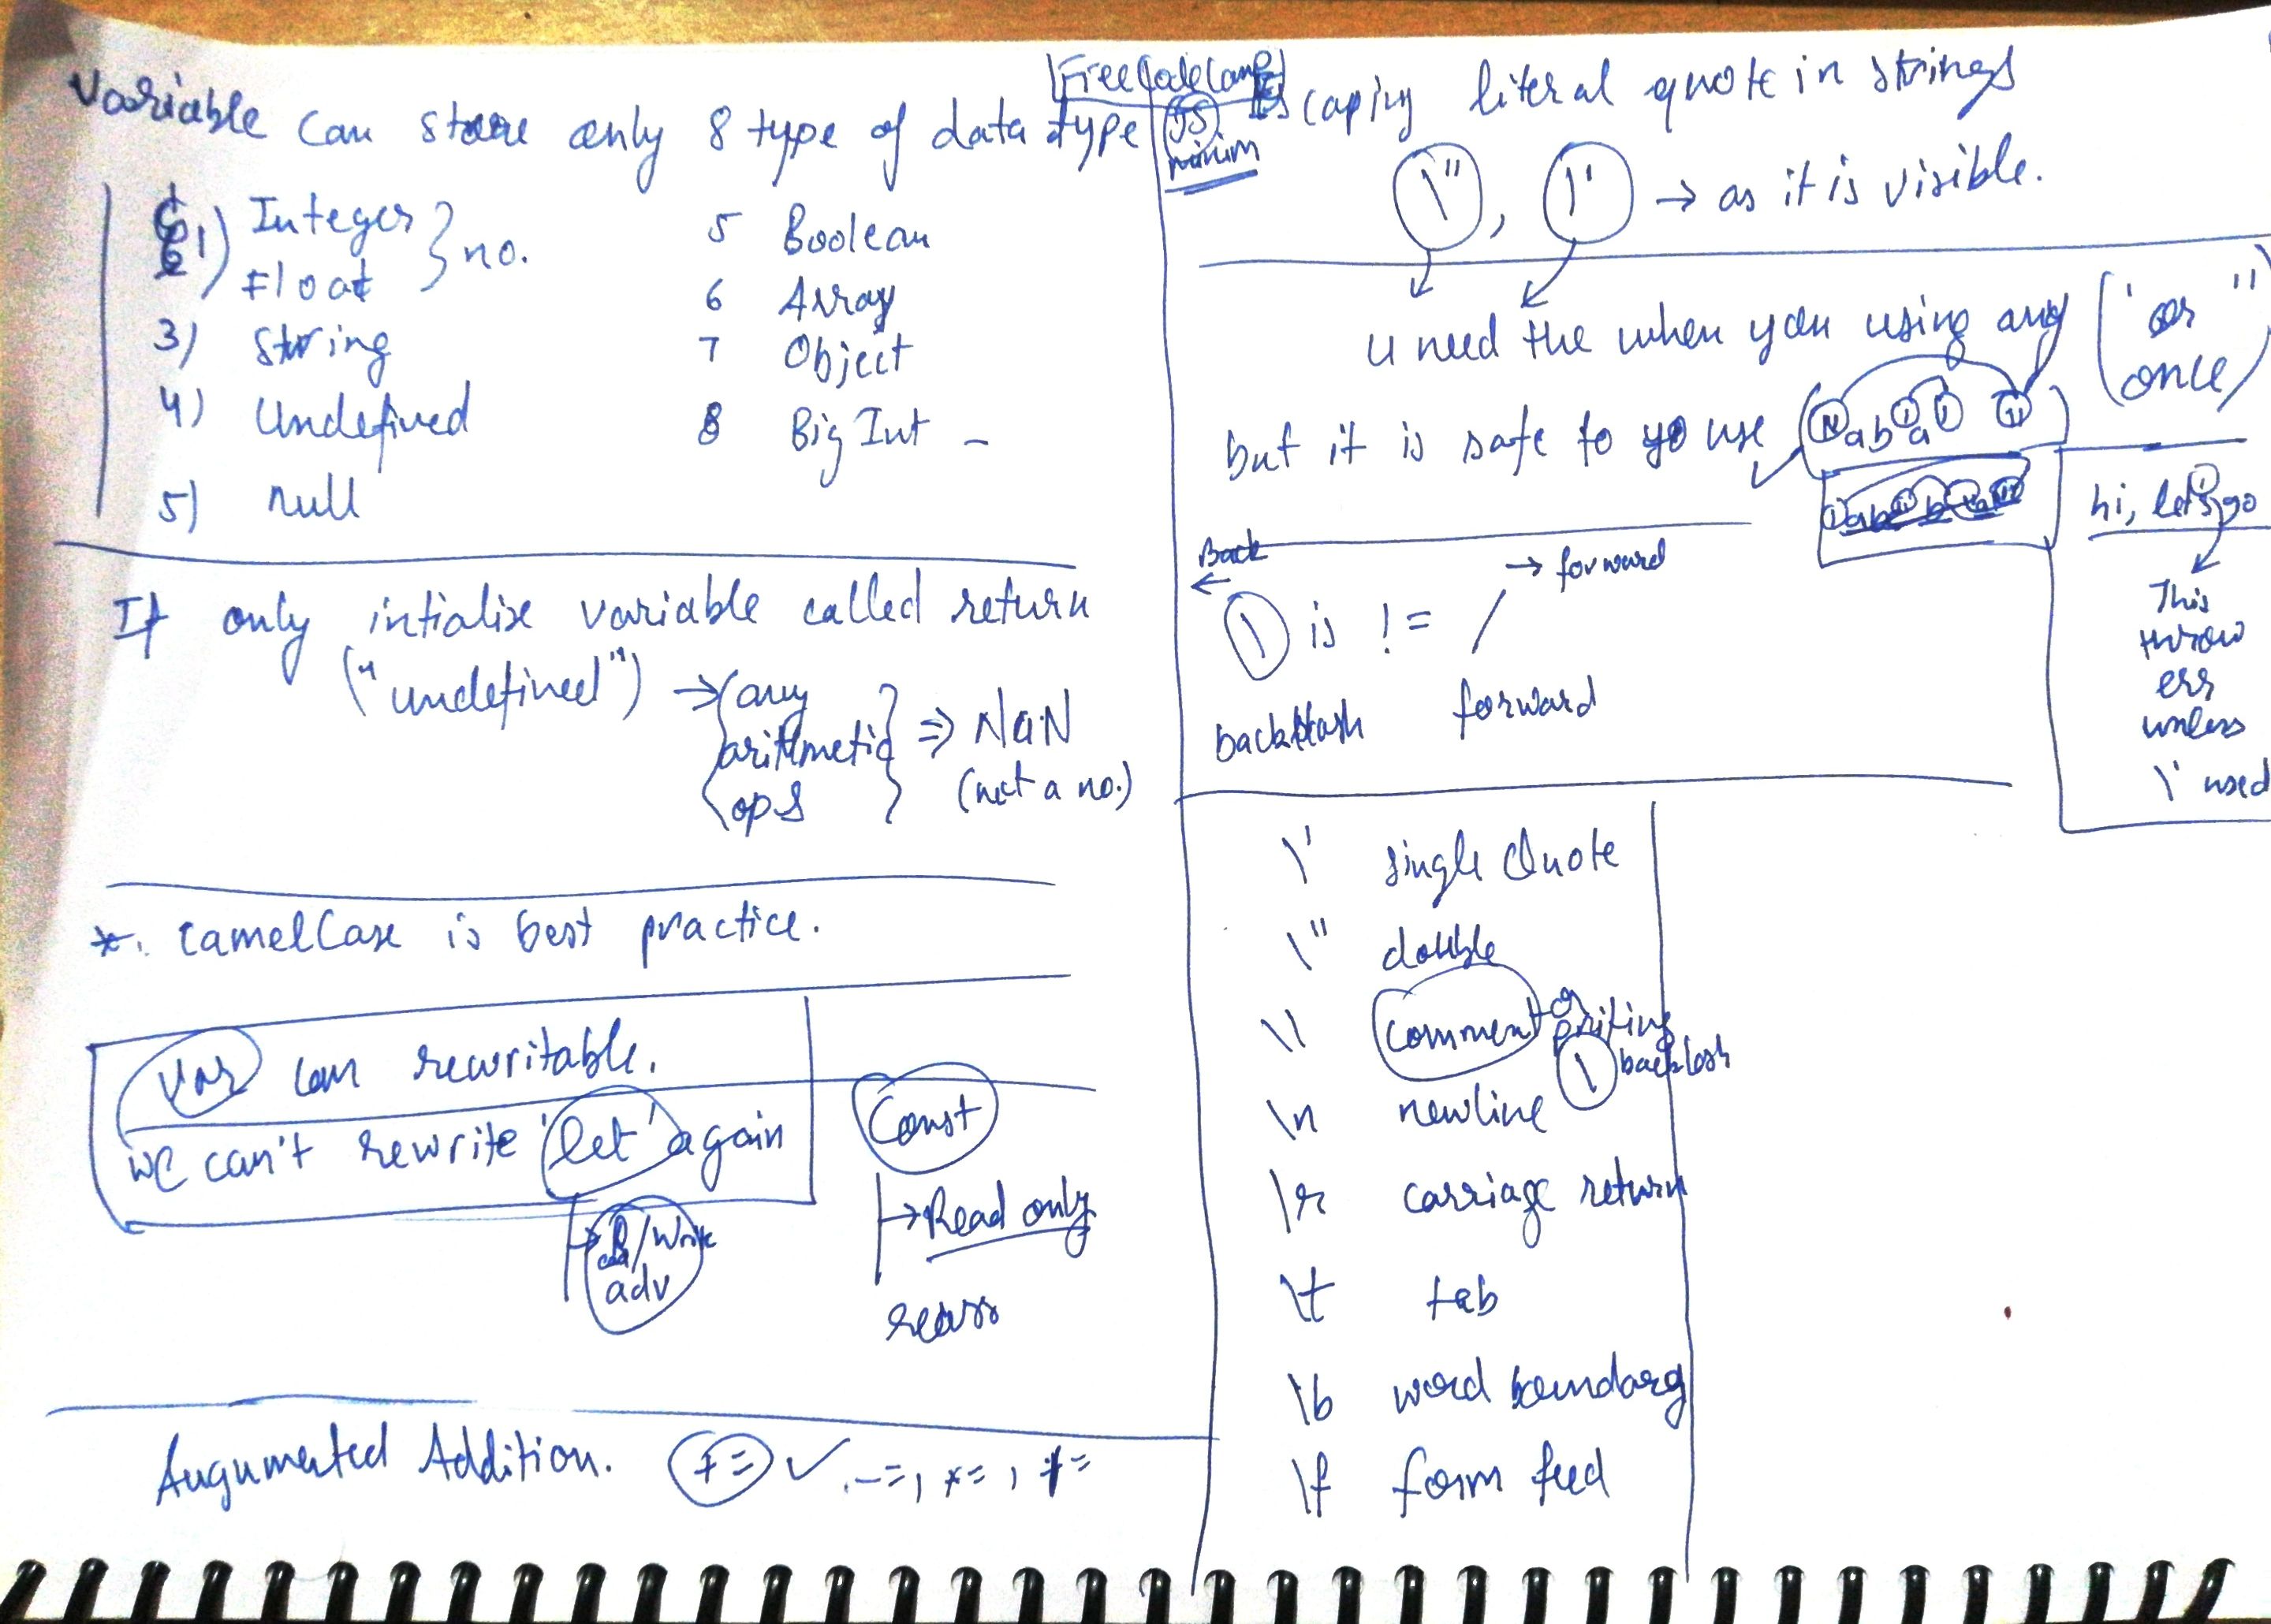 FreeCodeCamp
JS
minim
Variable can store only 8 type of data type
1) Integer
Float } no.
3) String
4) Undefined
5) null
5 Boolean
6 Array
7 Object
8 Big Int -
If only intialize variable called return
("undefined") → {any arithmetic ops} ⇒ NaN
(not a no.)
*. camelCase is best practice.
Var can rewritable.
we can't rewrite 'let' again
→ R/Write
adv
Const
→ Read only
reass
Augumented Addition. += ✓ . -=, *=, /=
Escaping literal quote in strings
\", \' → as it is visible.
u need the when you using any (' or " once)
but it is safe to go use
hi, let's go
This
throw
err
unless
\' used
Back
←
→ forward
\ is != /
backslash forward
\' single Quote
\" double
\\ Comment or priting
\ backlash
\n newline
\r carriage return
\t tab
\b word boundary
\f form feed